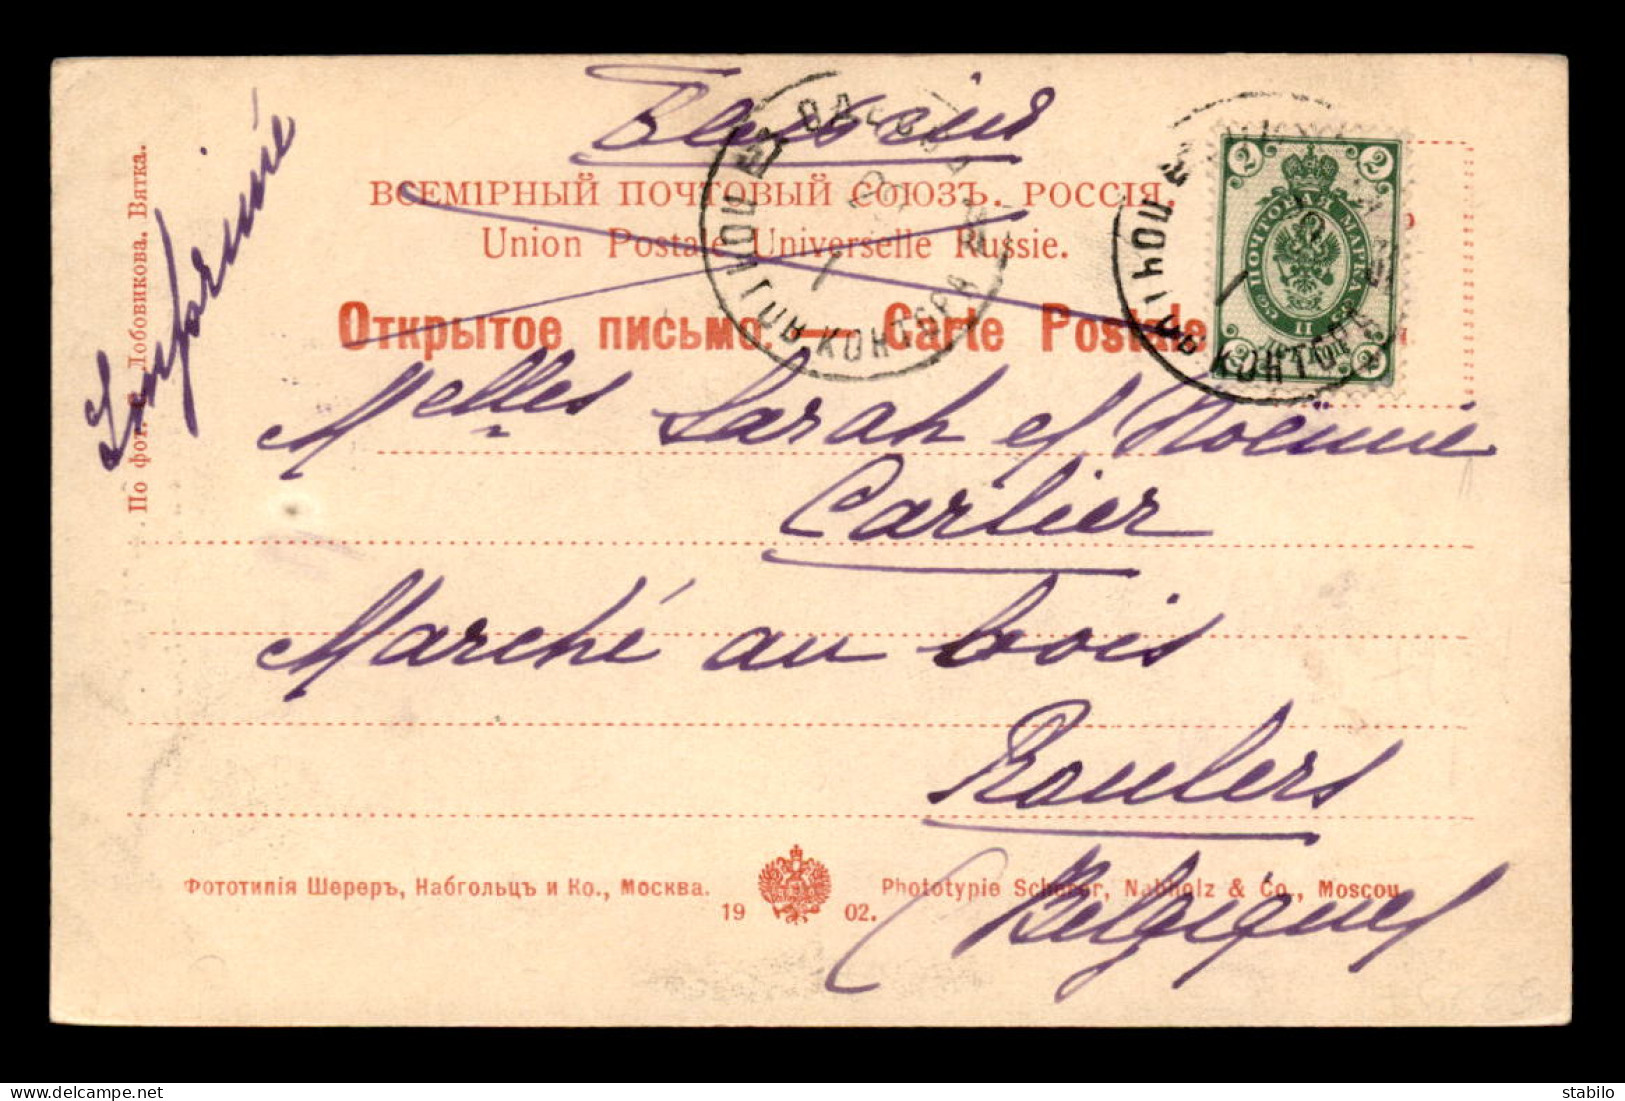 Бельгія
ВСЕМІРНЫЙ ПОЧТОВЫЙ СОЮЗЪ. РОССІЯ.
Union Postale Universelle Russie.
Открытое письмо. — Carte Postale
Imprimé
По фот. С. Лобовикова. Вятка.
2 2
ПОЧТОВАЯ МАРКА
II
2 2
КОНТОРА
КОНТОРА
Melles Sarah et Noëmie
Carlier
Marché au bois
Roulers
(Belgique)
Фототипія Шереръ, Набгольцъ и Ко., Москва.
1902.
Phototypie Scherer, Nabholz & Co., Moscou
delcampe.net
stabilo